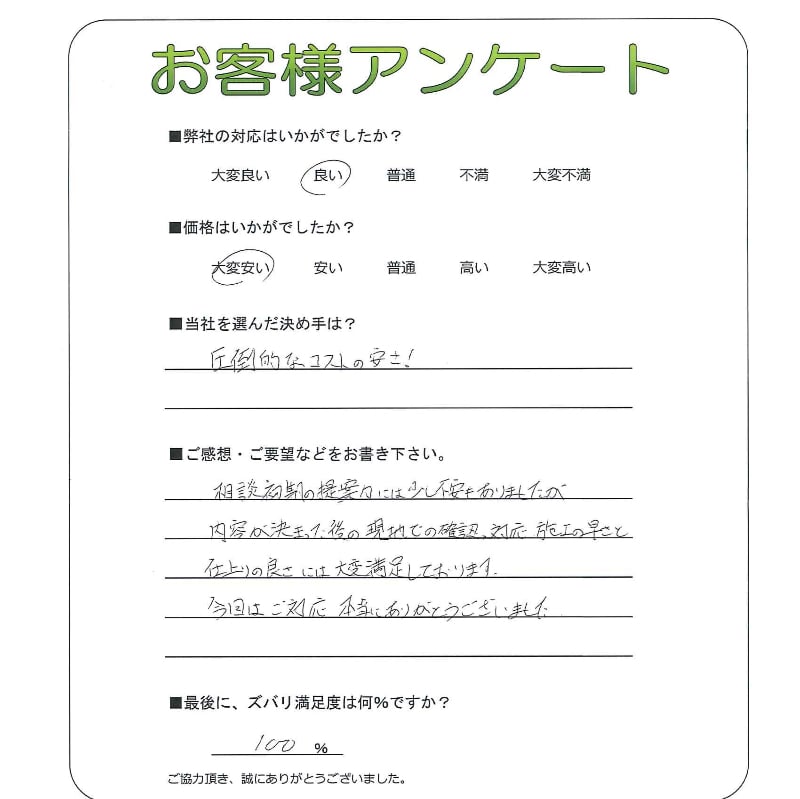 お客様アンケート
■弊社の対応はいかがでしたか？
大変良い 良い 普通 不満 大変不満
■価格はいかがでしたか？
大変安い 安い 普通 高い 大変高い
■当社を選んだ決め手は？
圧倒的なコストの安さ！
■ご感想・ご要望などをお書き下さい。
相談初期の提案力には少し不安もありましたが
内容が決まった後の現地での確認、対応 施工の早さと
仕上りの良さには大変満足しております。
今回はご対応 本当にありがとうございました
■最後に、ズバリ満足度は何％ですか？
100 ％
ご協力頂き、誠にありがとうございました。